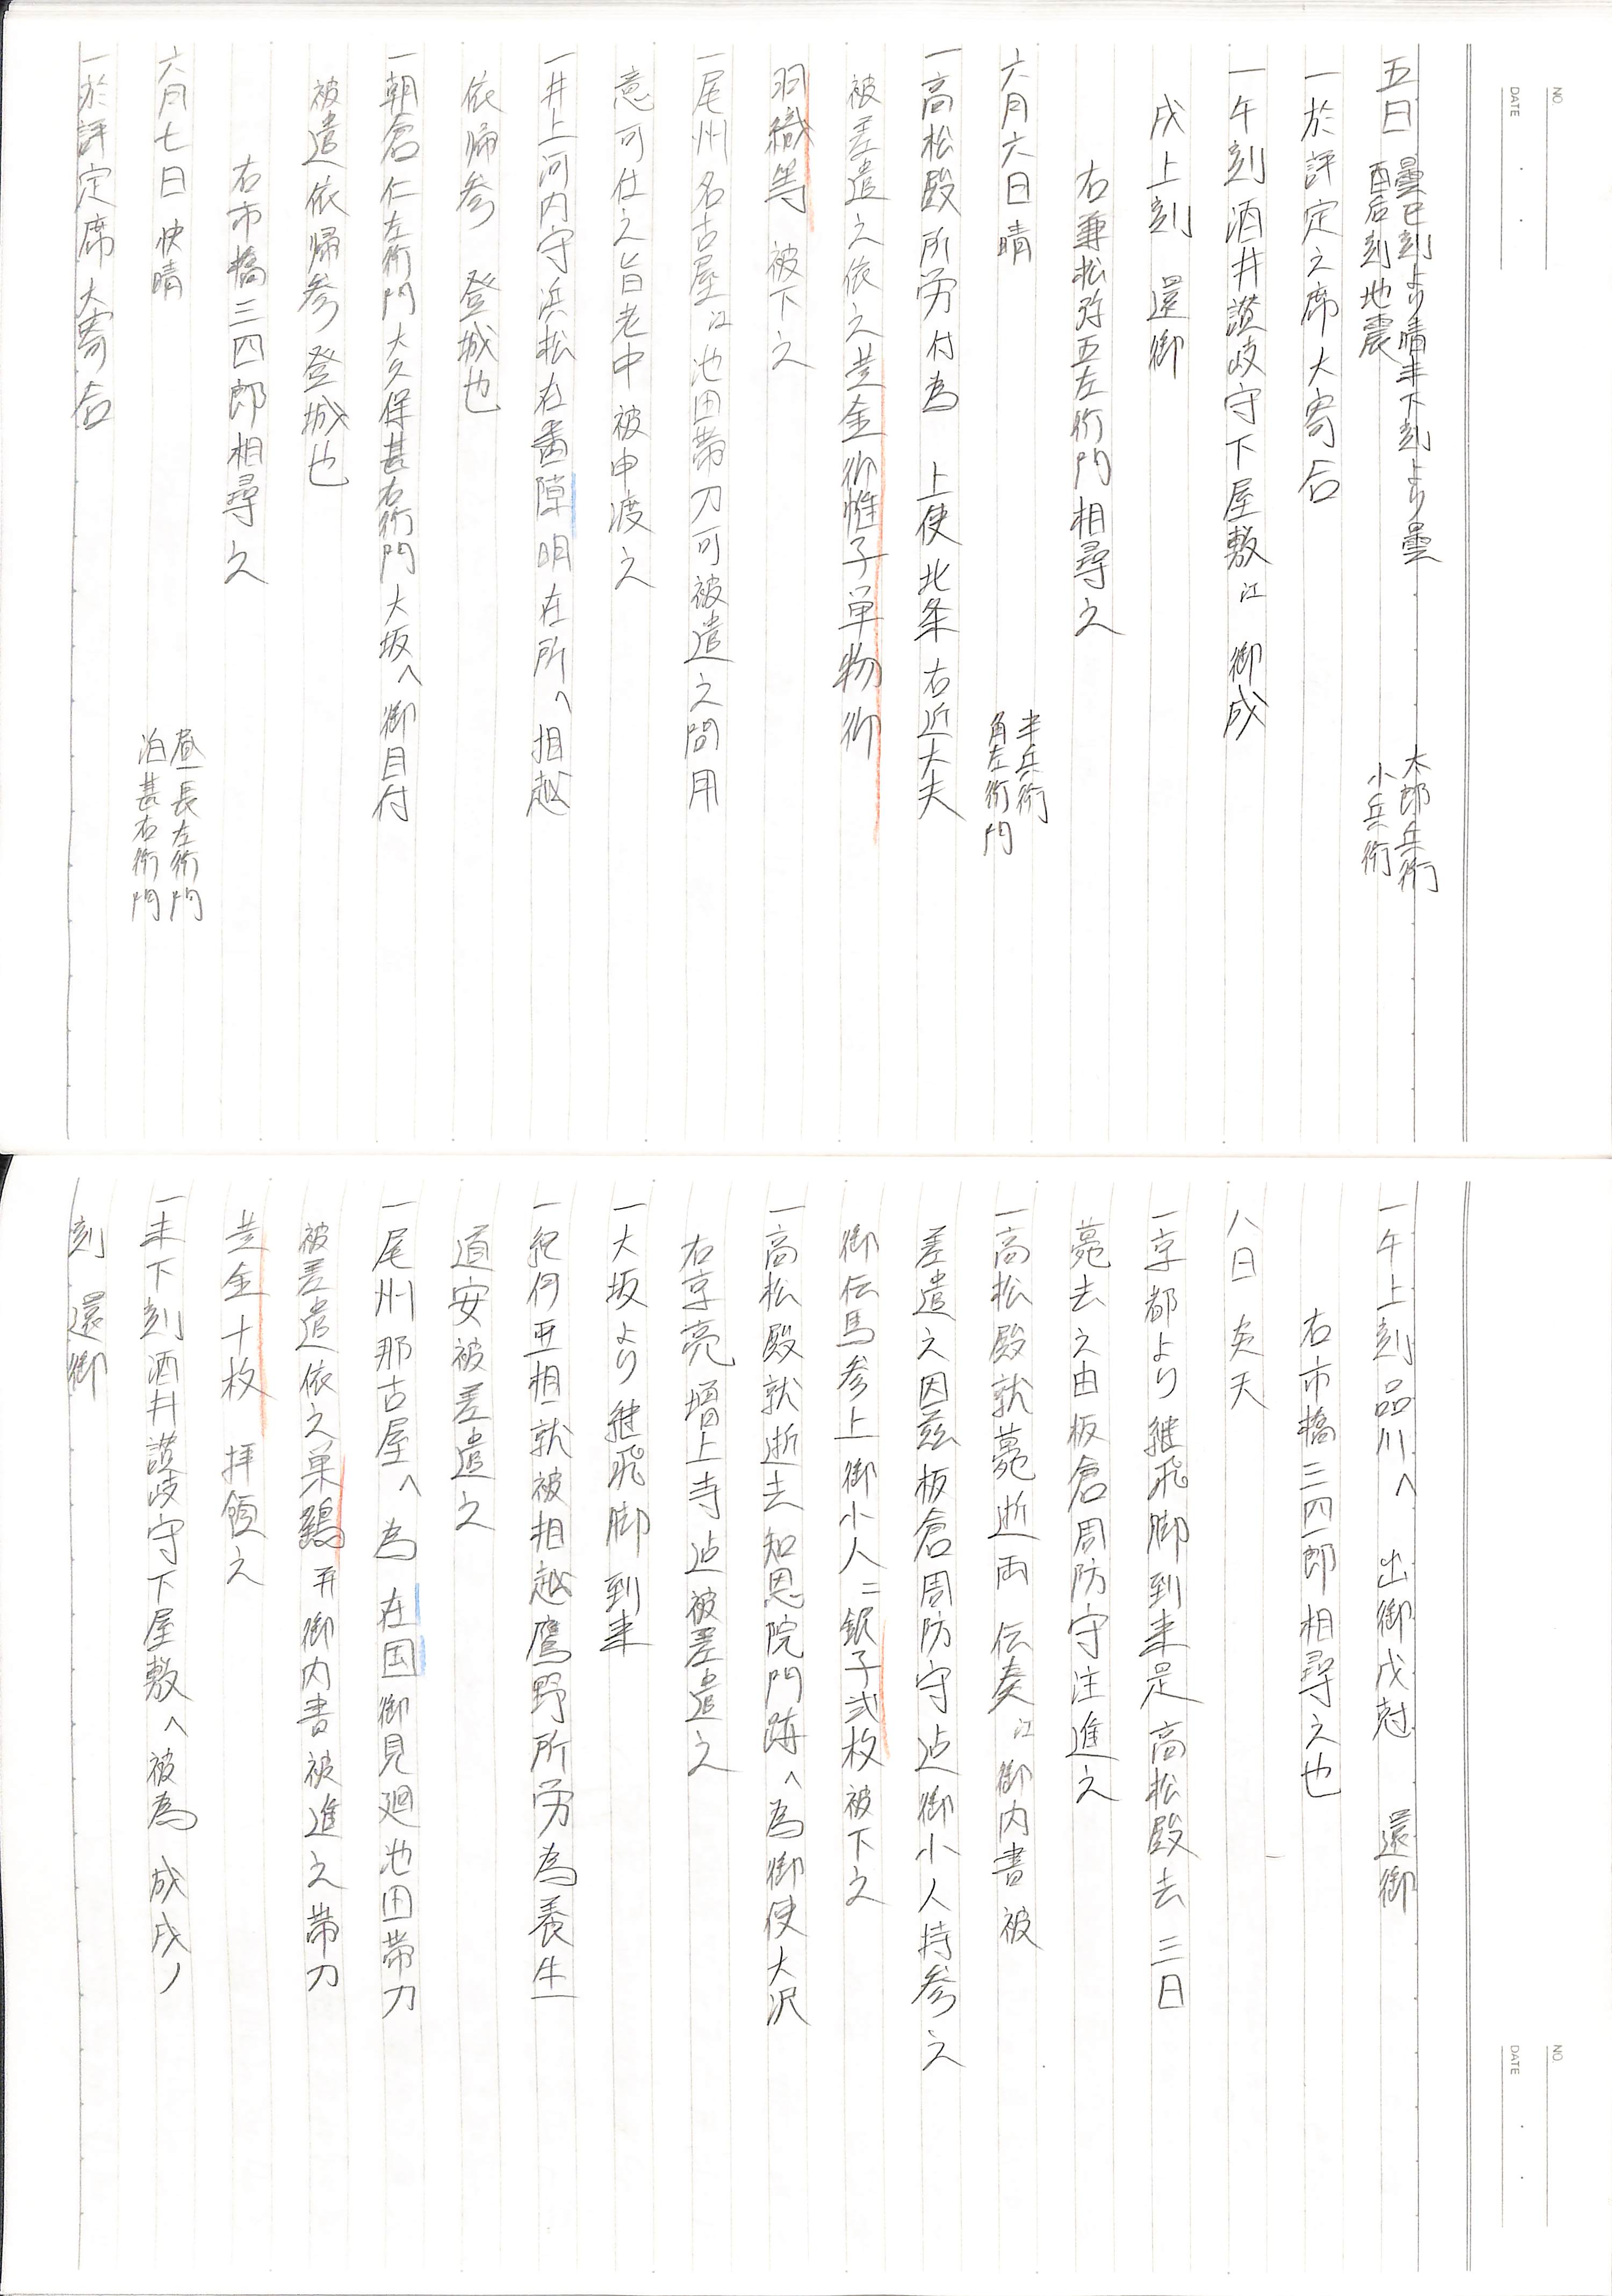 NO.
DATE
五日 曇巳刻より晴未下刻より曇 太郎兵衛
酉后刻地震 小兵衛
一於評定之席大寄合
一午刻酒井讃岐守下屋敷江 御成
戌上刻 還御
右兼松弥五左衛門相尋之
六月六日晴 半兵衛
角左衛門
一高松殿所労付為 上使北条右近大夫
被差遣之依之芝金御帷子単物御
羽織等 被下之
一尾州名古屋江池田帯刀可被遣之間用
意可仕之旨老中 被申渡之
一井上河内守浜松在番障明在所へ相越
依帰参 登城也
一朝倉仁左衛門大久保甚右衛門大坂へ御目付
被遣依帰参登城也
右市橋三四郎相尋之
六月七日快晴 昼長左衛門
泊甚右衛門
一於評定席大寄合
一午上刻品川へ 出御戌刻 還御
右市橋三四郎相尋之也
八日炎天
一京都より継飛脚到来是高松殿去三日
薨去之由板倉周防守注進之
一高松殿就薨逝両伝奏江御内書被
差遣之因茲板倉周防守迄御小人持参之
御伝馬参上御小人ニ銀子弐枚被下之
一高松殿就逝去知恩院門跡へ為御使大沢
右京亮増上寺迄被差遣之
一大坂より継飛脚到来
一紀伊亜相就被相越鷹野所労為養生
道安被差遣之
一尾州那古屋へ為在国御見廻池田帯刀
被差遣依之巣鷂并御内書被進之帯刀
芝金十枚 拝領之
一未下刻酒井讃岐守下屋敷へ被為 成戌ノ
刻 還御
NO.
DATE